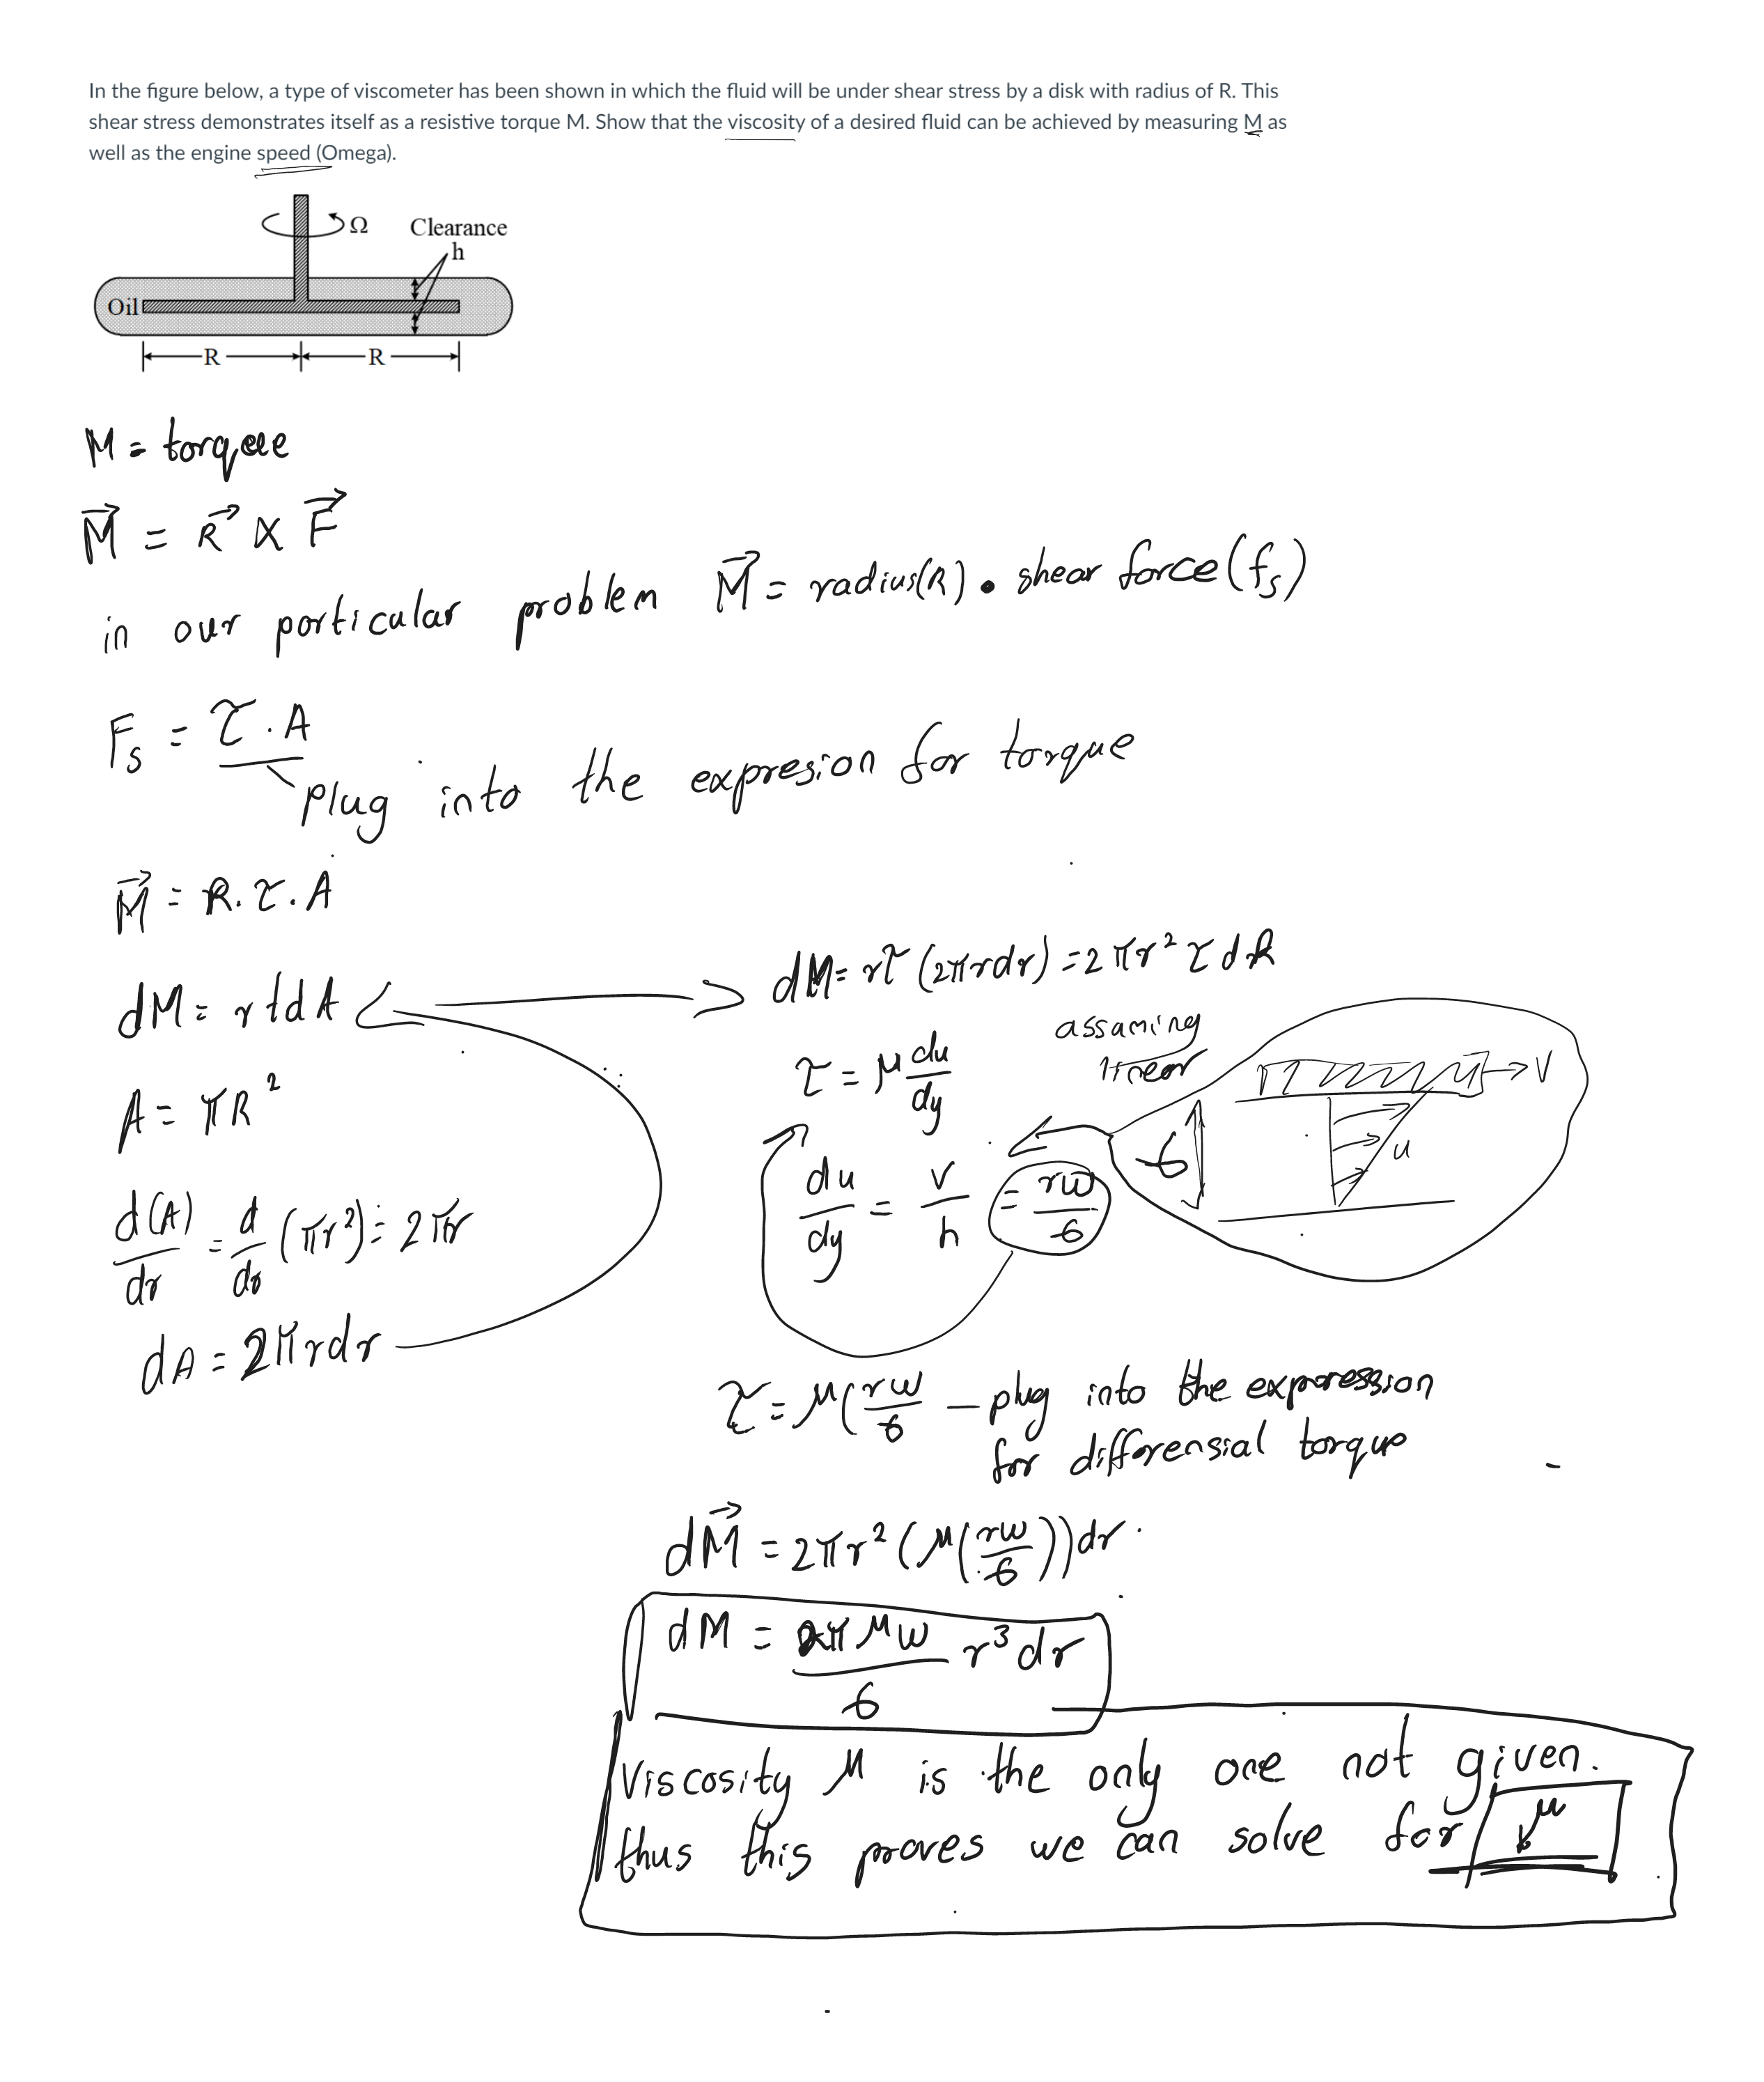 In the figure below, a type of viscometer has been shown in which the fluid will be under shear stress by a disk with radius of R. This
shear stress demonstrates itself as a resistive torque M. Show that the viscosity of a desired fluid can be achieved by measuring M as
well as the engine speed (Omega).
Ω
Clearance
h
Oil
R
R
M = torque
M⃗ = R⃗ X F⃗
in our particular problem M⃗ = radius(R) • shear force (fs)
Fs = τ . A
plug into the expresion for torque
M⃗ = R . τ . A
dM = r t d A
A = πR²
d(A)/dr = d/dr (πr²) = 2πr
dA = 2πrdr
dM = rτ (2πrdr) = 2πr² τ dR
τ = μ du/dy
assaming
linear
V
u
6
du/dy = v/h = rw/6
τ = μ(rw/6 – plug into the expression
for differensial torque
dM⃗ = 2πr² (μ(rw/6))dr
dM = 2πμw/6 r³ dr
Viscosity μ is the only one not given.
thus this proves we can solve for μ